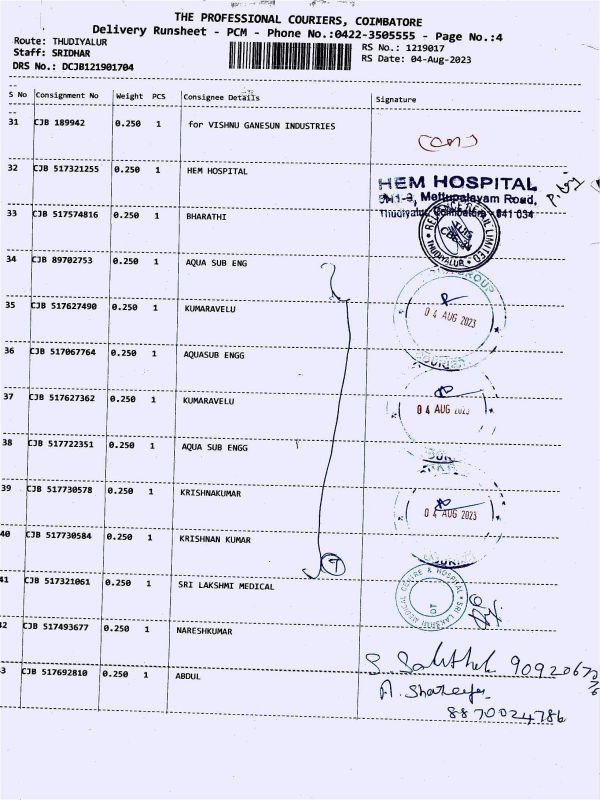 THE PROFESSIONAL COURIERS, COIMBATORE
Delivery Runsheet - PCM - Phone No.:0422-3505555 - Page No.:4
Route: THUDIYALUR
RS No.: 1219017
Staff: SRIDHAR
RS Date: 04-Aug-2023
DRS No.: DCJB121901704
S No Consignment No Weight PCS Consignee Details Signature
31 CJB 189942 0.250 1 for VISHNU GANESUN INDUSTRIES
32 CJB 517321255 0.250 1 HEM HOSPITAL
HEM HOSPITAL
Mettupalayam Road,
Thudiyalur, Coimbatore - 641 034
33 CJB 517574816 0.250 1 BHARATHI
RELIANCE RETAIL LIMITED
THUDIYALUR
34 CJB 89702753 0.250 1 AQUA SUB ENG
35 CJB 517627490 0.250 1 KUMARAVELU
04 AUG 2023
36 CJB 517067764 0.250 1 AQUASUB ENGG
37 CJB 517627362 0.250 1 KUMARAVELU
04 AUG 2023
38 CJB 517722351 0.250 1 AQUA SUB ENGG
39 CJB 517730578 0.250 1 KRISHNAKUMAR
04 AUG 2023
40 CJB 517730584 0.250 1 KRISHNAN KUMAR
7
41 CJB 517321061 0.250 1 SRI LAKSHMI MEDICAL
SRI LAKSHMI MEDICAL CENTRE & HOSPITAL
OT
42 CJB 517493677 0.250 1 NARESHKUMAR
43 CJB 517692810 0.250 1 ABDUL
8870024786